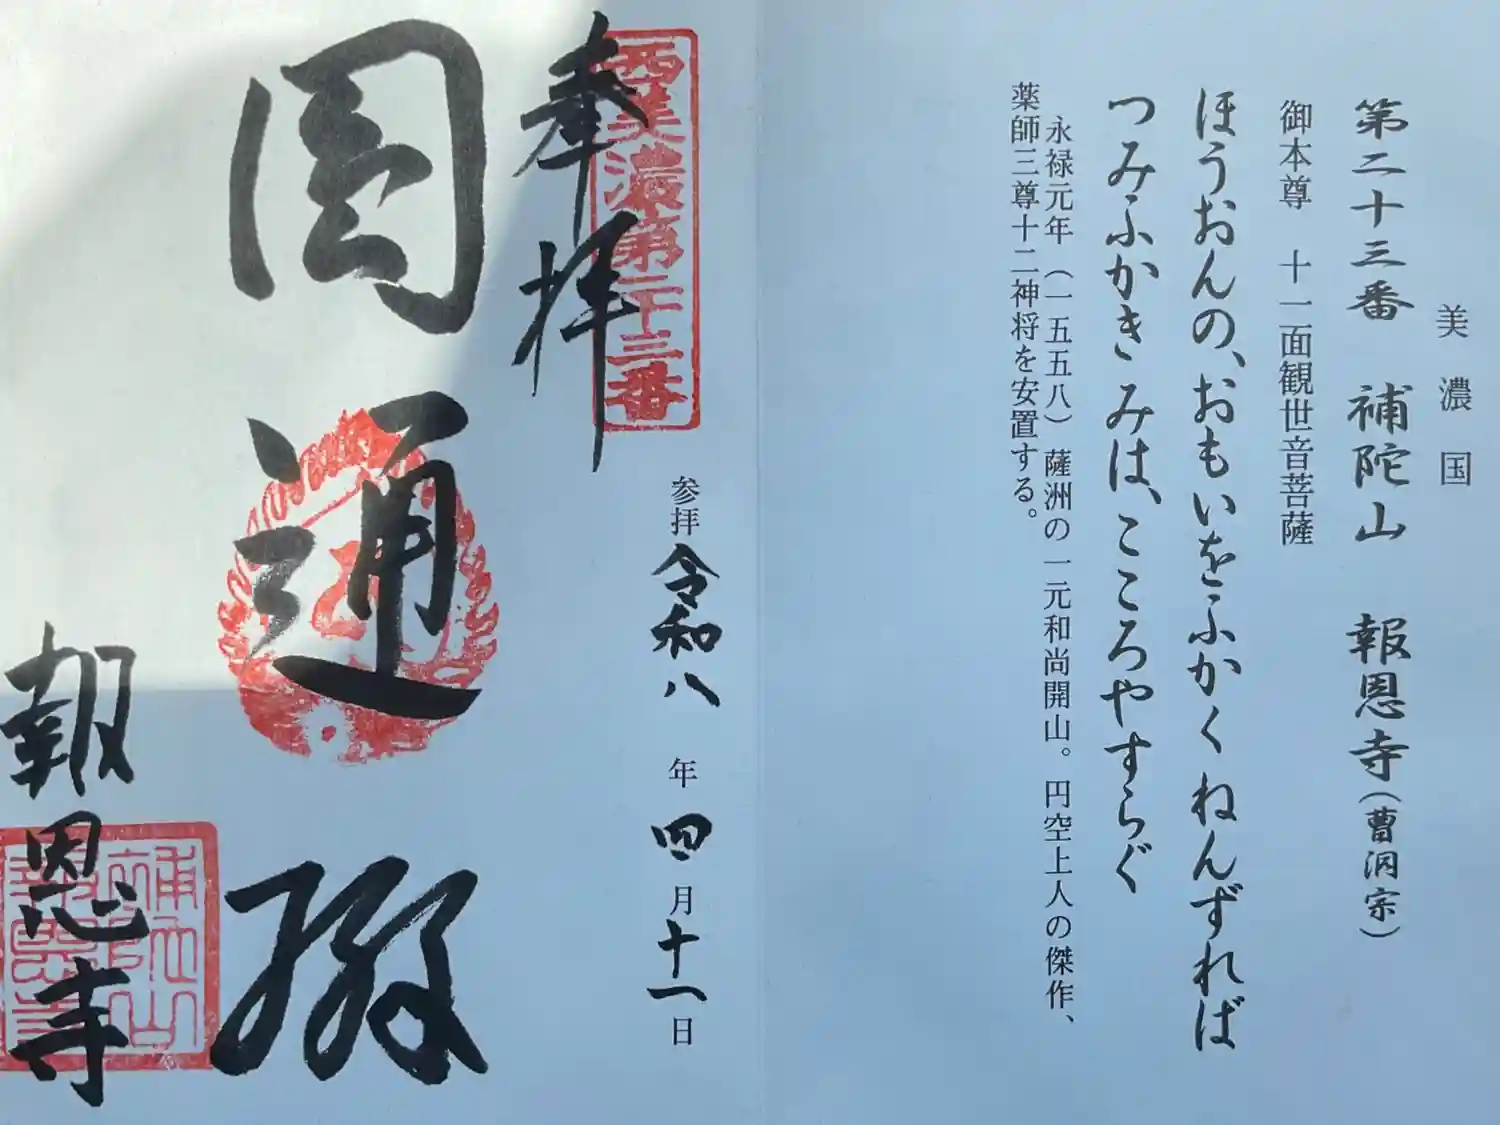 美濃国
第二十三番 補陀山 報恩寺(曹洞宗)
御本尊 十一面観世音菩薩
ほうおんの、おもいをふかくねんずれば
つみふかきみは、こころやすらぐ
永禄元年(一五五八)薩洲の一元和尚開山。円空上人の傑作、
薬師三尊十二神将を安置する。
西美濃第二十三番
奉拝
参拝 令和八年四月十一日
圓通
報恩寺